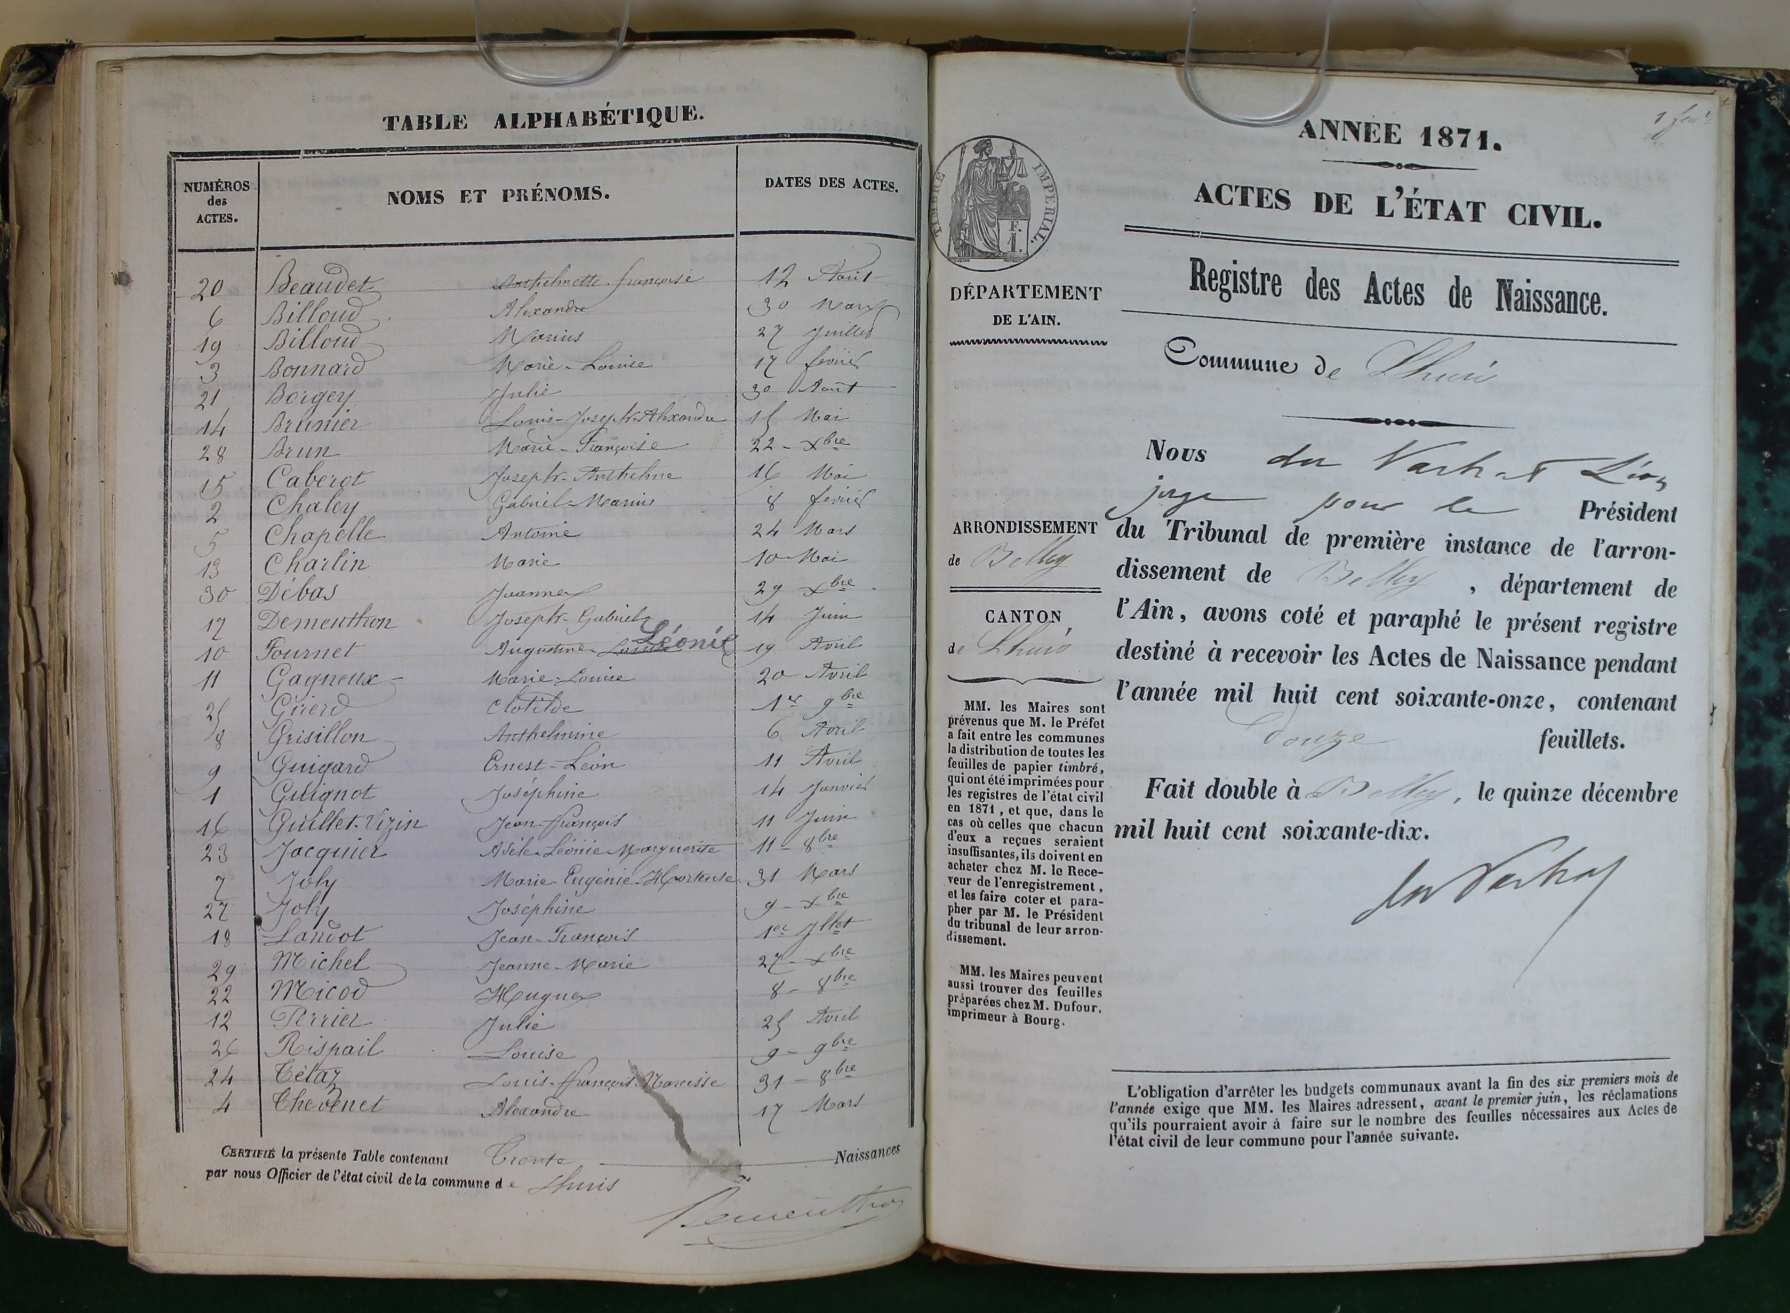 TABLE ALPHABÉTIQUE.
NUMÉROS des ACTES. NOMS ET PRÉNOMS. DATES DES ACTES.
20 Beaudet Anthelmette françoise 12 Août
6 Billoud Alexandre 30 Mars
19 Billoud Marius 27 Juillet
3 Bonnard Marie-Louise 17 février
21 Borgey Julie 30 Août
14 Brunier Louis-Joseph-Alexandre 15 Mai
28 Brun Marie-Françoise 22 - Xbre
15 Caberot Joseph-Anthelme 16 Mai
2 Chaley Gabriel-Marius 8 février
5 Chapelle Antoine 24 Mars
13 Charlin Marie 10 Mai
30 Débas Jeanne 29 Xbre
17 Dementhon Joseph-Gabriel 14 Juin
10 Fournet Augustine Léonie 19 Avril
11 Gagneux Marie-Louise 20 Avril
25 Girerd Clotilde 1er 9bre
8 Grisillon Anthelmine 6 Avril
9 Guigard Ernest-Léon 11 Avril
1 Guignot Joséphine 14 Janvier
16 Guillet-Vizin Jean-françois 11 Juin
23 Jacquier Adèle-Léonie-Marguerite 11 - 8bre
7 Joly Marie-Eugénie-Hortense 31 Mars
27 Joly Joséphine 9 - Xbre
18 Landot Jean-François 1er Jllet
29 Michel Jeanne-Marie 27 - Xbre
22 Micod Hugues 8 - 8bre
12 Perrier Julie 25 Avril
26 Rispail Louise 9 - 9bre
24 Tétaz Louis-françois-Narcisse 31 - 8bre
4 Thevenet Alexandre 17 Mars
CERTIFIÉ la présente Table contenant Trente Naissances
par nous Officier de l'état civil de la commune de Lhuis
Dementhon
ANNÉE 1871.
ACTES DE L'ÉTAT CIVIL.
TIMBRE IMPÉRIAL.
F. 1.
DÉPARTEMENT
DE L'AIN.
Registre des Actes de Naissance.
Commune de Lhuis
ARRONDISSEMENT
de Belley
CANTON
de Lhuis
MM. les Maires sont
prévenus que M. le Préfet
a fait entre les communes
la distribution de toutes les
feuilles de papier timbré,
qui ont été imprimées pour
les registres de l'état civil
en 1871, et que, dans le
cas où celles que chacun
d'eux a reçues seraient
insuffisantes, ils doivent en
acheter chez M. le Rece-
veur de l'enregistrement,
et les faire coter et para-
pher par M. le Président
du tribunal de leur arron-
dissement.
MM. les Maires peuvent
aussi trouver des feuilles
préparées chez M. Dufour,
imprimeur à Bourg.
Nous Léon
juge pour le Président
du Tribunal de première instance de l'arron-
dissement de Belley, département de
l'Ain, avons coté et paraphé le présent registre
destiné à recevoir les Actes de Naissance pendant
l'année mil huit cent soixante-onze, contenant
Douze feuillets.
Fait double à Belley, le quinze décembre
mil huit cent soixante-dix.
L'obligation d'arrêter les budgets communaux avant la fin des six premiers mois de
l'année exige que MM. les Maires adressent, avant le premier juin, les réclamations
qu'ils pourraient avoir à faire sur le nombre des feuilles nécessaires aux Actes de
l'état civil de leur commune pour l'année suivante.